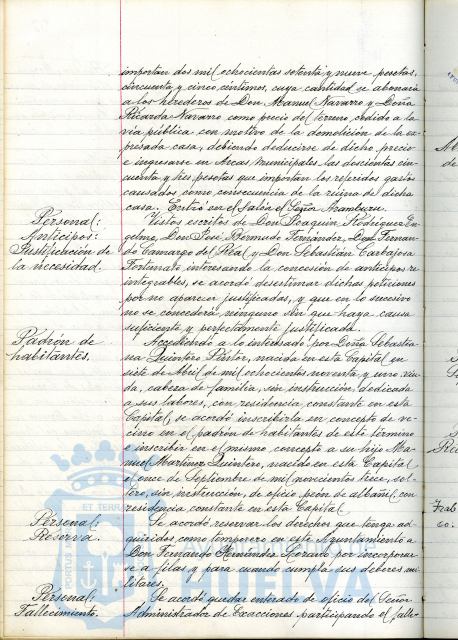 importan dos mil ochocientas setenta y nueve pesetas,
cincuenta y cinco céntimos, cuya cantidad se abonará
a los herederos de Don Manuel Navarro y Doña
Ricarda Navarro como precio del terreno cedido a la
vía pública con motivo de la demolición de la ex-
presada casa, debiendo deducirse de dicho precio
e ingresarse en Arcas Municipales las doscientas cin-
cuenta y tres pesetas que importan los referidos gastos
causados como consecuencia de la ruina de dicha
casa. Entró en el Salón el Señor Aramburu.
Personal:
Anticipos:
Justificación de
la necesidad.
Vistos escritos de Don Joaquín Rodríguez En-
gelmo, Don José Bermudo Fernández, Don Fernan-
do Camargo del Real y Don Sebastián Carbajosa
Fortunato interesando la concesión de anticipos re-
integrables, se acordó desestimar dichas peticiones
por no aparecer justificadas, y que en lo sucesivo
no se concederá ninguno sin que haya causa
suficiente y perfectamente justificada.
Padrón de
habitantes.
Accediendo a lo interesado por Doña Sebastia-
na Quintero Pastor, nacida en esta Capital en
siete de Abril de mil ochocientos noventa y uno, viu-
da, cabeza de familia, sin instrucción, dedicada
a sus labores, con residencia constante en esta
Capital, se acordó inscribirla en concepto de ve-
cino en el padrón de habitantes de este término
e inscribir en el mismo concepto a su hijo Ma-
nuel Martínez Quintero, nacido en esta Capital
el once de Septiembre de mil novecientos trece, sol-
tero, sin instrucción, de oficio peón de albañil, con
residencia constante en esta Capital.
Personal:
Reserva.
Se acordó reservar los derechos que tenga ad-
quiridos como temporero en este Ayuntamiento a
Don Fernando Fernández por incorporar-
se a filas y para cuando cumpla sus deberes mi-
litares.
Personal:
Fallecimiento.
Se acordó quedar enterado de oficio del Señor
Administrador de Exacciones participando el falle-
HUELVA